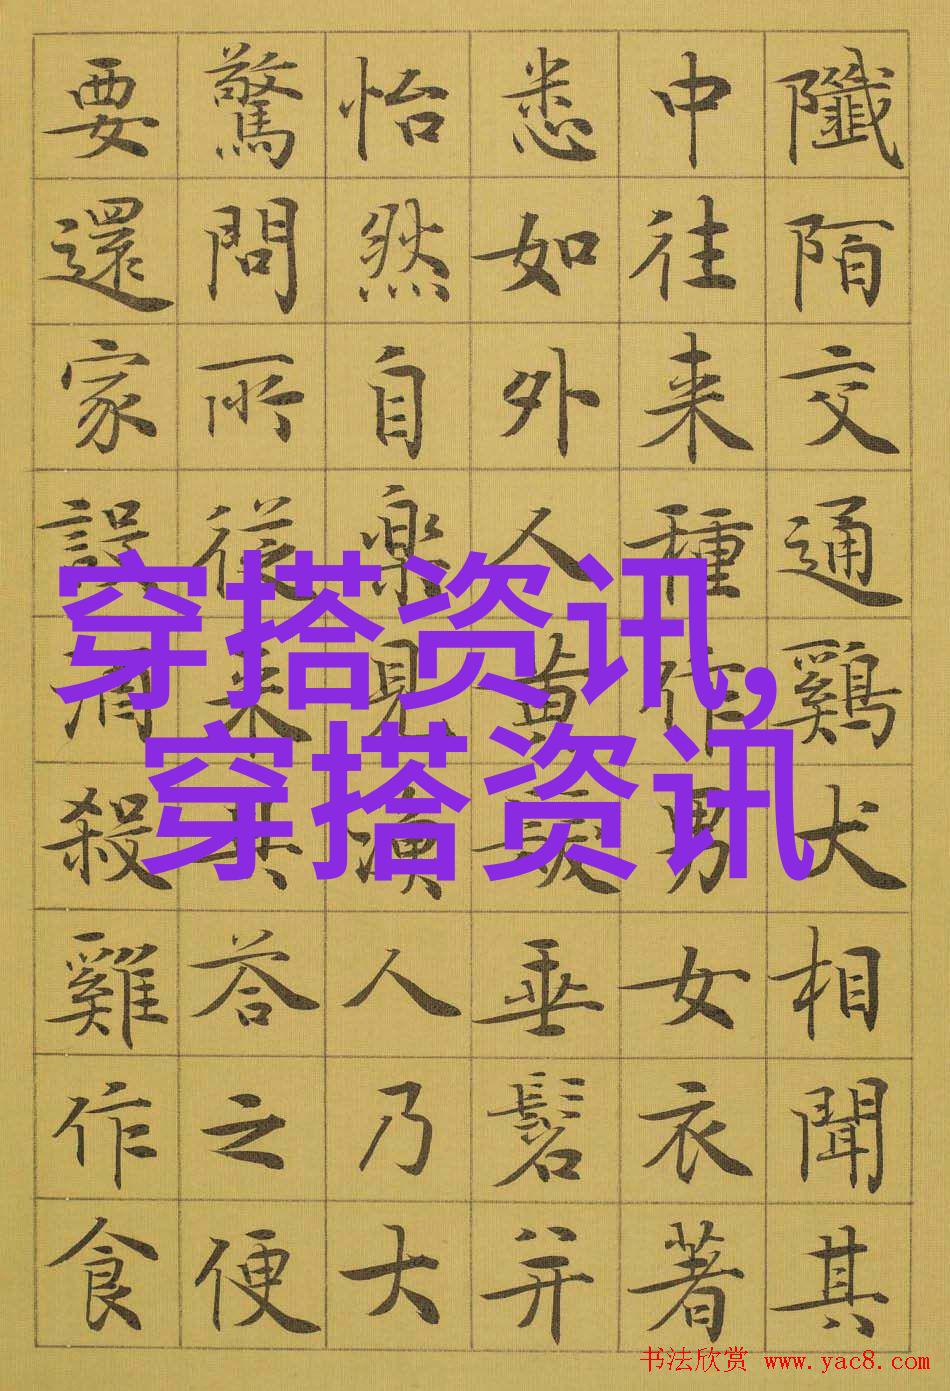 陌交通鷄犬相聞其
中往来種作男女衣著
悉如外人黄髮垂髫并
怡然自楽見漁人乃大
驚問所従来具荅之便
要還家設酒殺雞作食
穿搭资讯,
穿搭资讯
书法欣赏 www.yac8.com